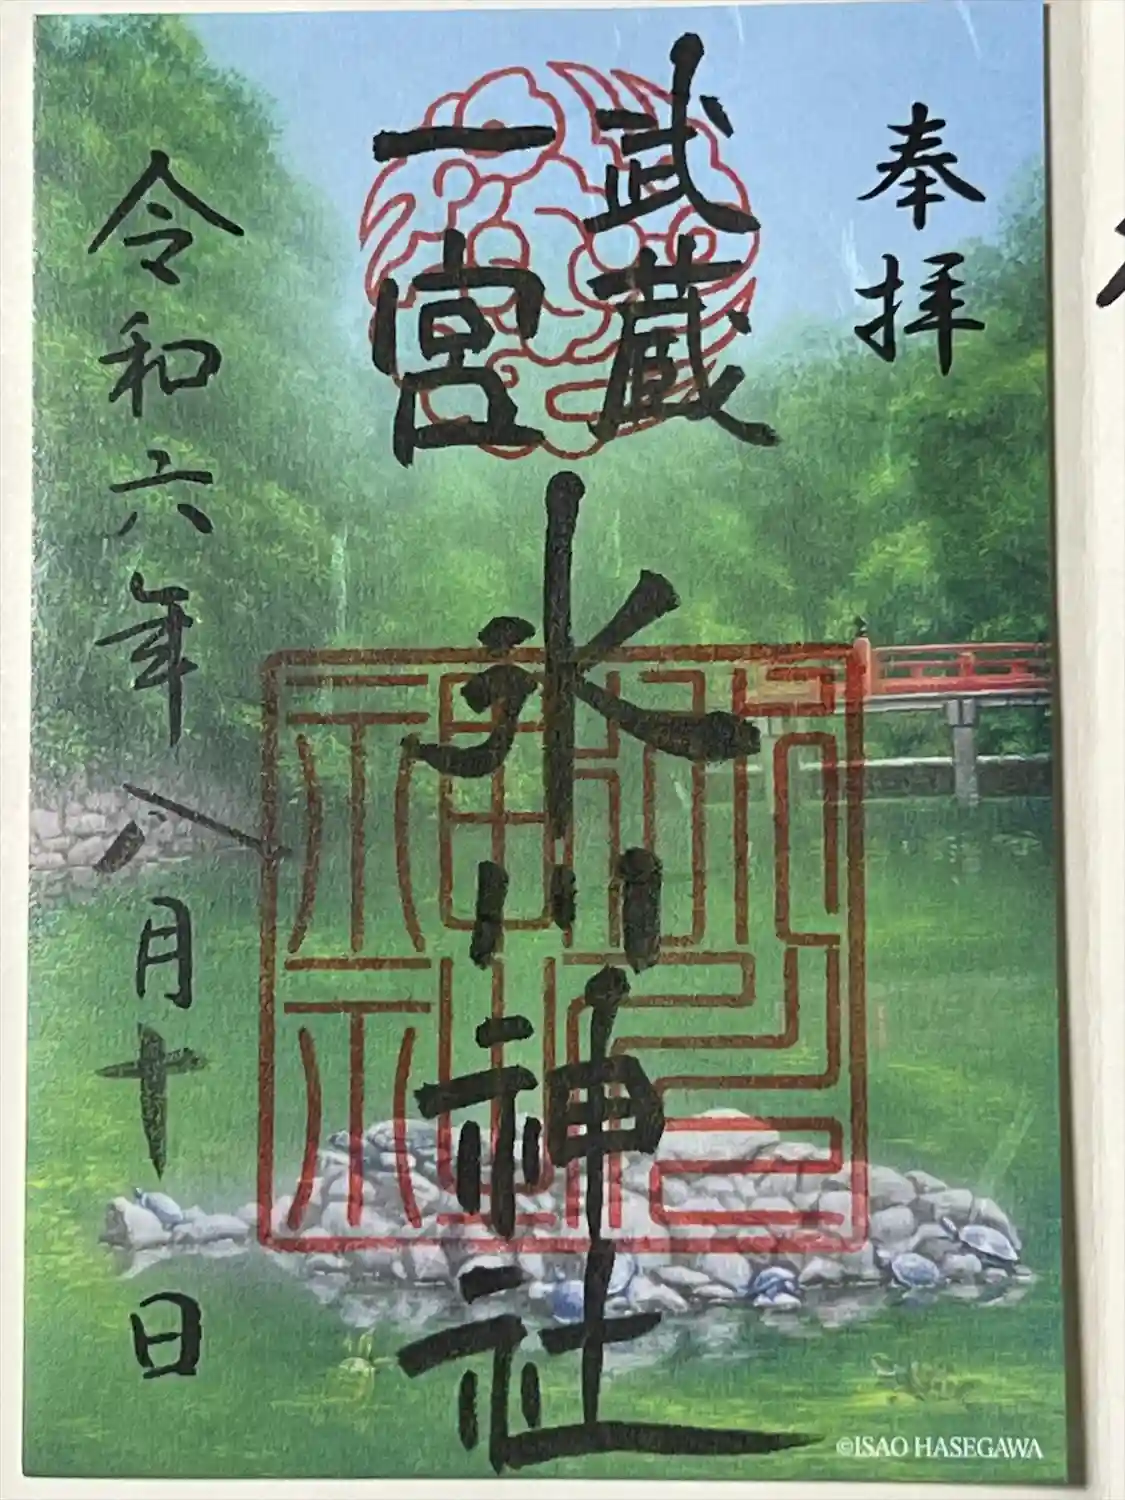 奉拝
武蔵
一宮
氷川神社
令和六年八月十日
©ISAO HASEGAWA